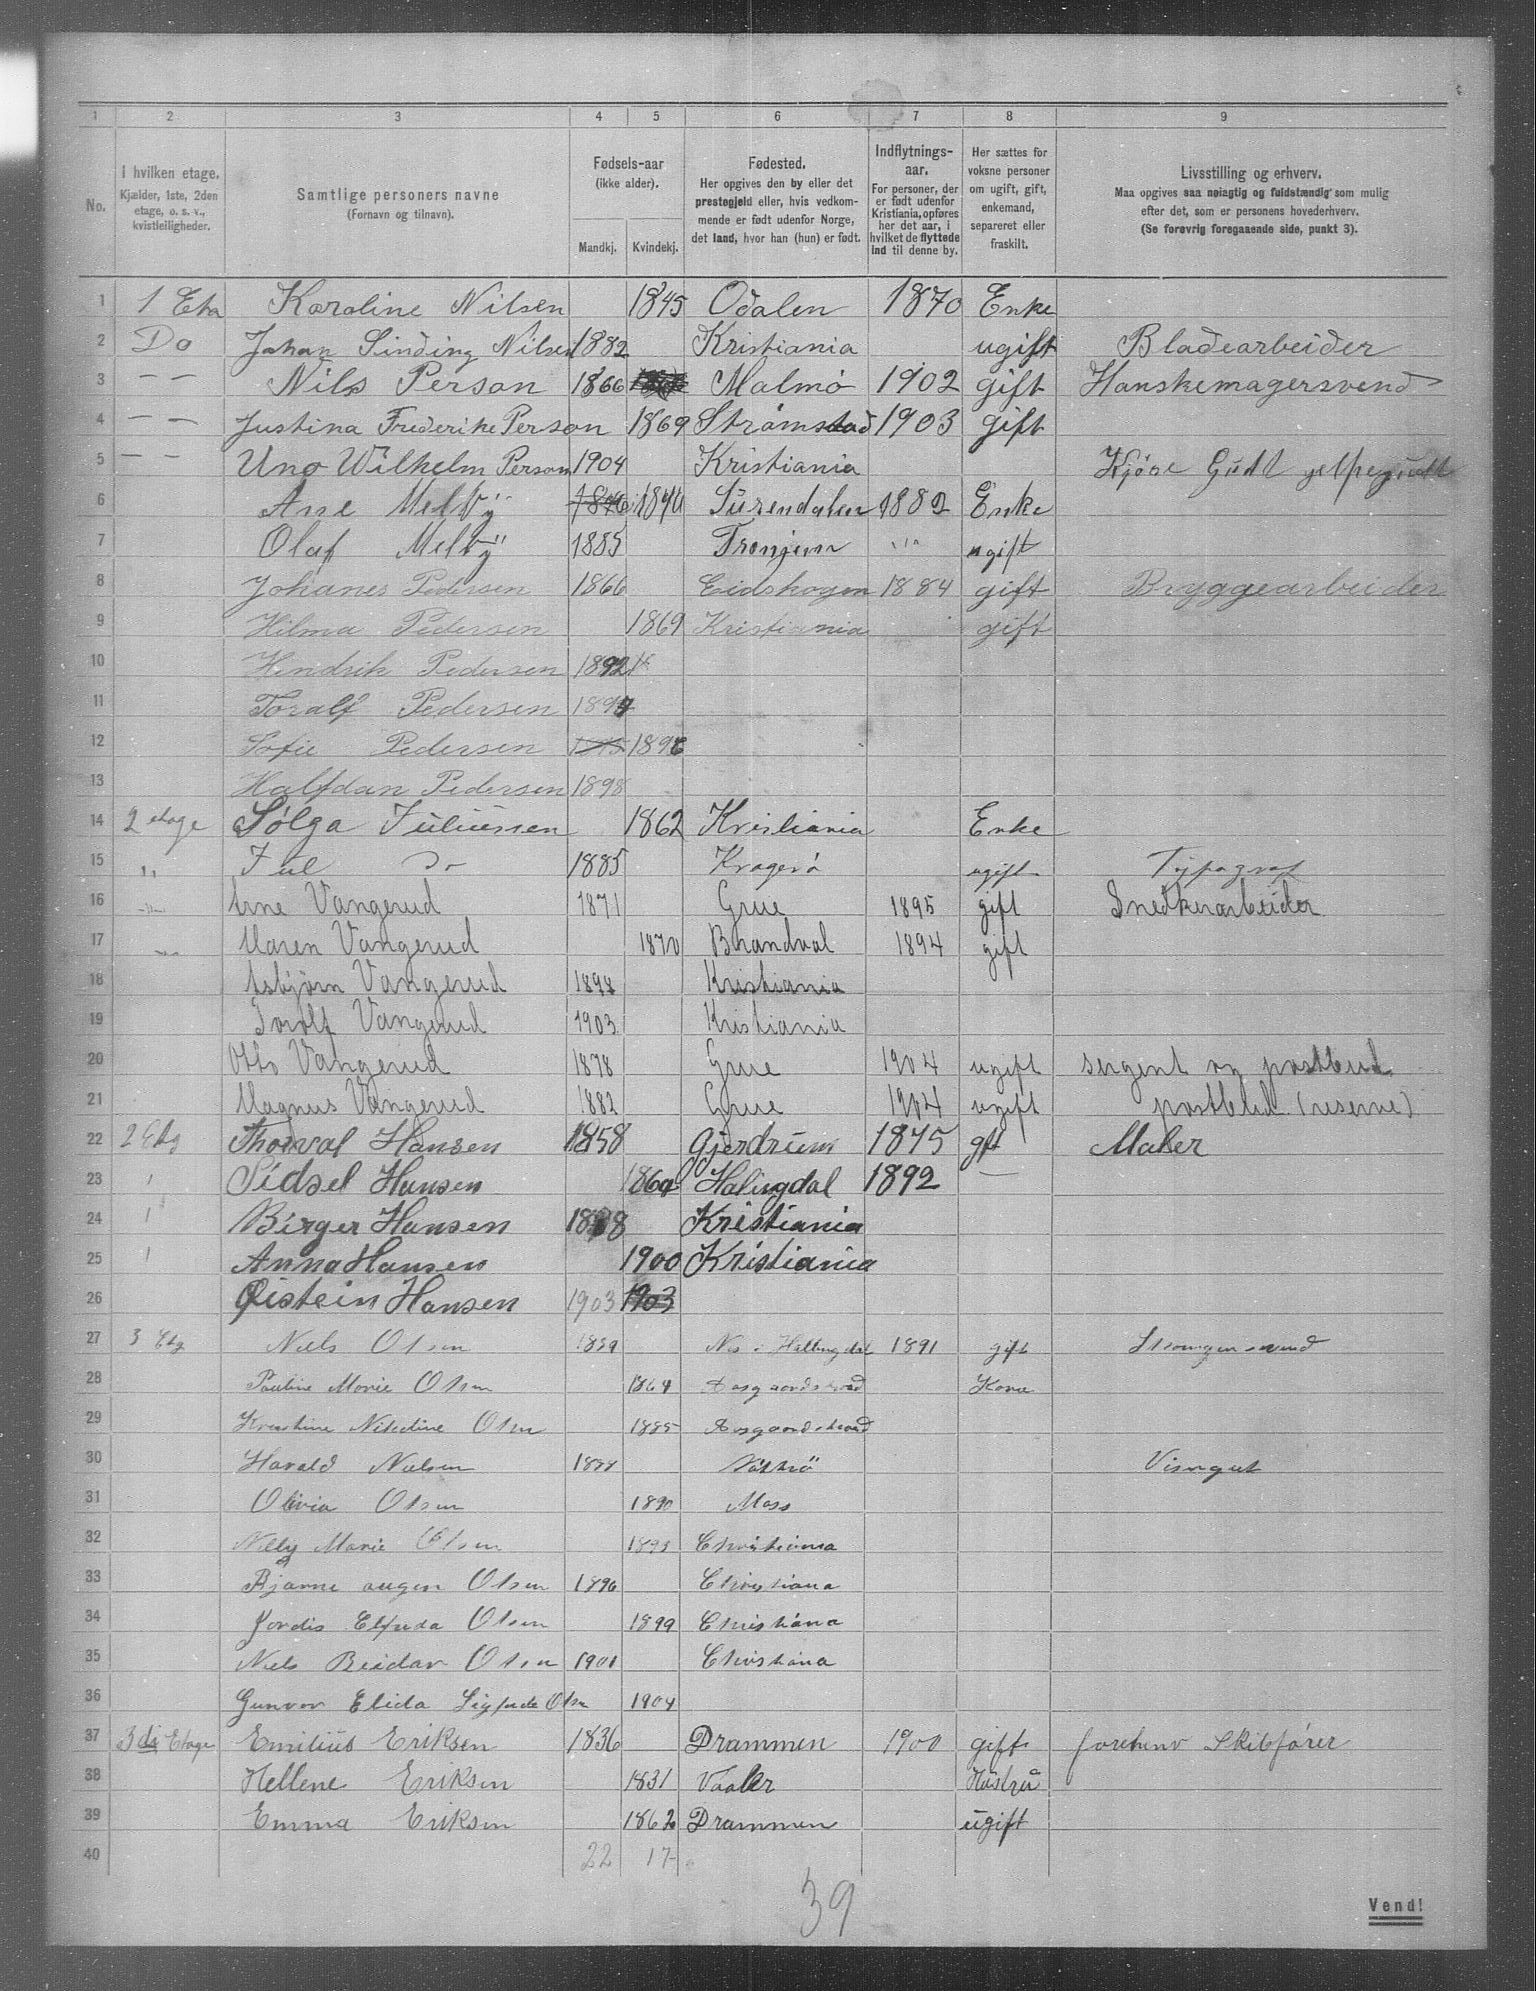 1 2 3 4 5 6 7 8 9
No.
I hvilken etage.
Kjælder, 1ste, 2den
etage, o. s. v.,
kvistleiligheder.
Samtlige personers navne
(Fornavn og tilnavn).
Fødsels-aar
(ikke alder).
Mandkj. Kvindekj.
Fødested.
Her opgives den by eller det
prestegjeld eller, hvis vedkom-
mende er født udenfor Norge,
det land, hvor han (hun) er født.
Indflytnings-
aar.
For personer, der
er født udenfor
Kristiania, opføres
her det aar, i
hvilket de flyttede
ind til denne by.
Her sættes for
voksne personer
om ugift, gift,
enkemand,
separeret eller
fraskilt.
Livsstilling og erhverv.
Maa opgives saa nøiagtig og fuldstændig som mulig
efter det, som er personens hovederhverv.
(Se forøvrig foregaaende side, punkt 3).
1 1 Eta Karoline Nilsen 1845 Odalen 1870 Enke
2 Do Johan Sinding Nilsen 1882 Kristiania ugift Bladearbeider
3 — — Nils Person 1866 Malmö 1902 gift Hanskemagersvend
4 — — Justina Frederike Person 1869 Strømstad 1903 gift
5 — — Uno Wilhelm Person 1904 Kristiania
6 Ane Melby 1840 Surendalen 1882 Enke
7 Olaf Melby 1885 Tronjem "" ugift
8 Johanes Pedersen 1866 Eidskogen 1884 gift Bryggearbeider
9 Hilma Pedersen 1869 Kristiania gift
10 Hendrik Pedersen 1892
11 Toralf Pedersen 1894
12 Sofie Pedersen 1896
13 Halfdan Pedersen 1898
14 2 etage Sølga Juliussen 1862 Kristiania Enke
15 " Jul Do 1885 Kragerö ugift Typograf
16 " Arne Vangerud 1871 Grue 1895 gift Snedkerarbeider
17 " Maren Vangerud 1870 Brandval 1894 gift
18 Asbjørn Vangerud 1898 Kristiania
19 Torolf Vangerud 1903 Kristiania
20 Otto Vangerud 1878 Grue 1904 ugift sergent og postbud
21 Magnus Vangerud 1882 Grue 1904 ugift postbud (reserve)
22 2 Etg Thorval Hansen 1858 Gjerdrum 1875 gft Maler
23 " Sidsel Hansen Halingdal 1892 —
24 " Birger Hansen Kristiania
25 " Anna Hansen 1900 Kristiania
26 Øistein Hansen 1903 1903
27 3 Etg Niels Olsen 1859 Nes i Hallingdal 1891 gift
28 Pauline Marie Olsen 1864 Aasgaardstrand Kona
29 Kristine Nikoline Olsen 1885 Aasgaardstrand
30 Harald Nielsen Visergut
31 Olivia Olsen 1890 Moss
32 Nelly Marie Olsen 1893 Christiania
33 Bjarne Olsen 1896 Christiana
34 Jordis Elfrida Olsen 1899 Christiana
35 Niels Reidar Olsen 1901 Christiana
36 Gunvor Elida Olsen 1904
37 3di Etage Emilius Eriksen 1836 Drammen 1900 gift forhenv Skibfører
38 Hellene Eriksen 1831 Vaaler Hustru
39 Emma Eriksen 1862 Drammen ugift
40 22 17
39
Vend!